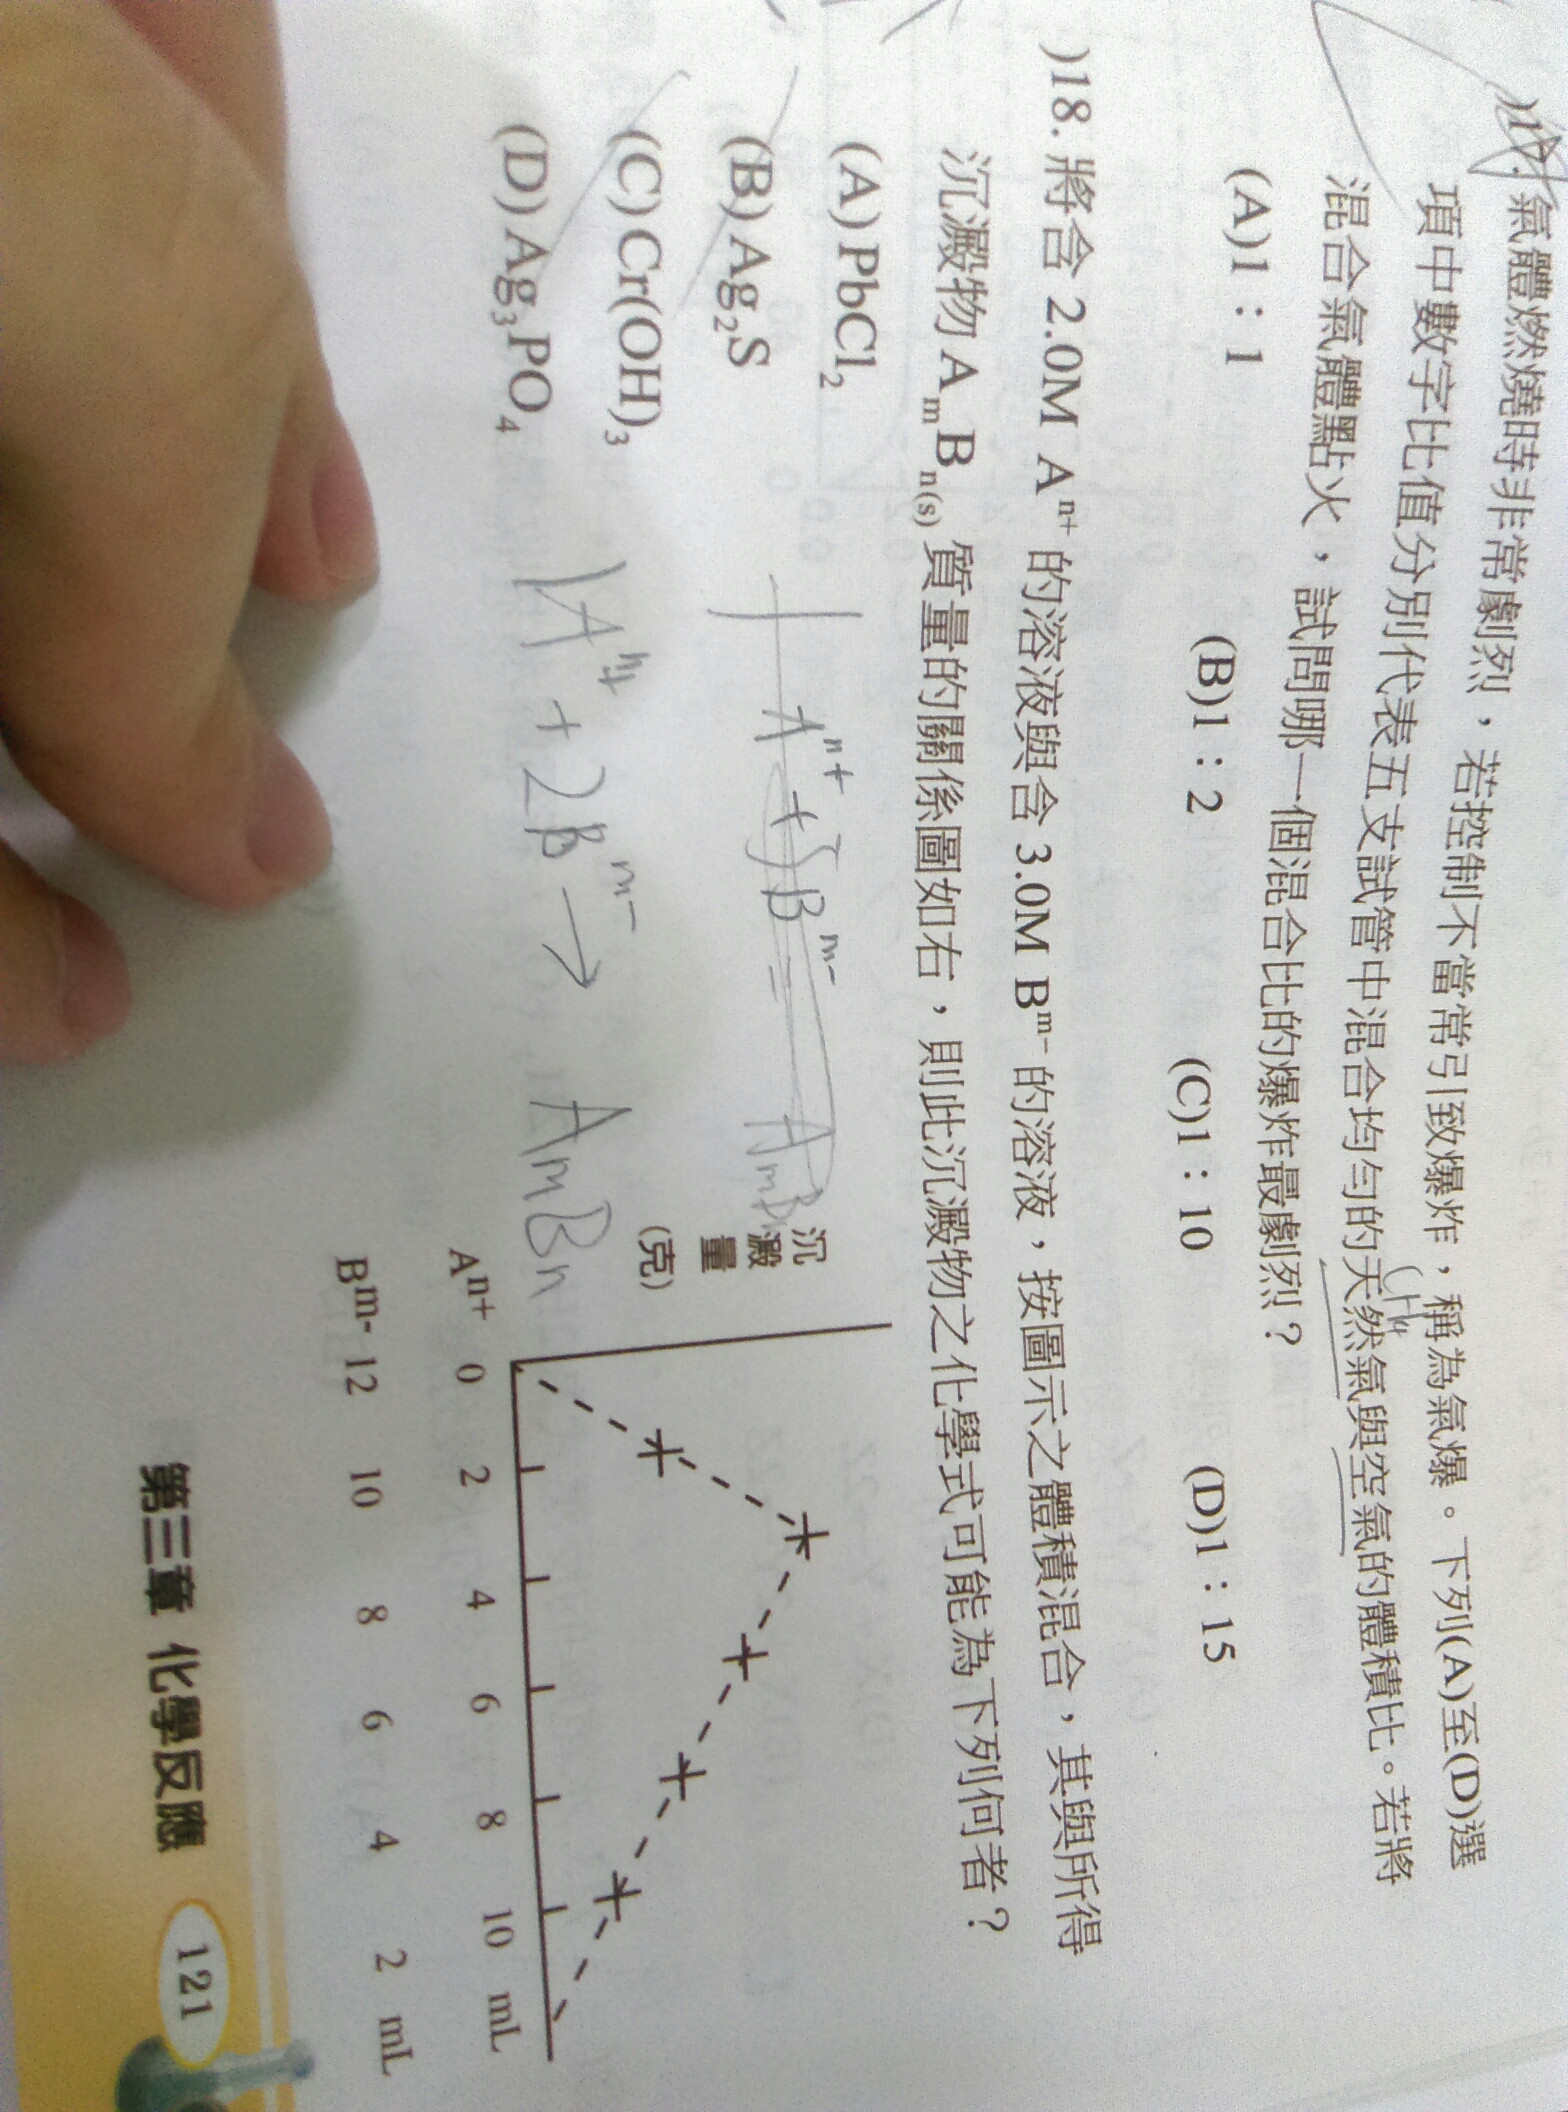 )17. 氣體燃燒時非常劇烈，若控制不當常引致爆炸，稱為氣爆。下列(A)至(D)選
項中數字比值分別代表五支試管中混合均勻的天然氣與空氣的體積比。若將
混合氣體點火，試問哪一個混合比的爆炸最劇烈？
CH4
(A)1：1 (B)1：2 (C)1：10 (D)1：15
)18. 將含 2.0M Aⁿ⁺ 的溶液與含 3.0M Bᵐ⁻ 的溶液，按圖示之體積混合，其與所得
沉澱物 AₘBₙ₍ₛ₎ 質量的關係圖如右，則此沉澱物之化學式可能為下列何者？
(A) PbCl₂
(B) Ag₂S
(C) Cr(OH)₃
(D) Ag₃PO₄
Aⁿ⁺ + Bᵐ⁻ = AmBn
1Aⁿ⁺ + 2Bᵐ⁻ → AmBn
沉
澱
量
(克)
Aⁿ⁺ 0 2 4 6 8 10 mL
Bᵐ⁻ 12 10 8 6 4 2 mL
第三章 化學反應 121